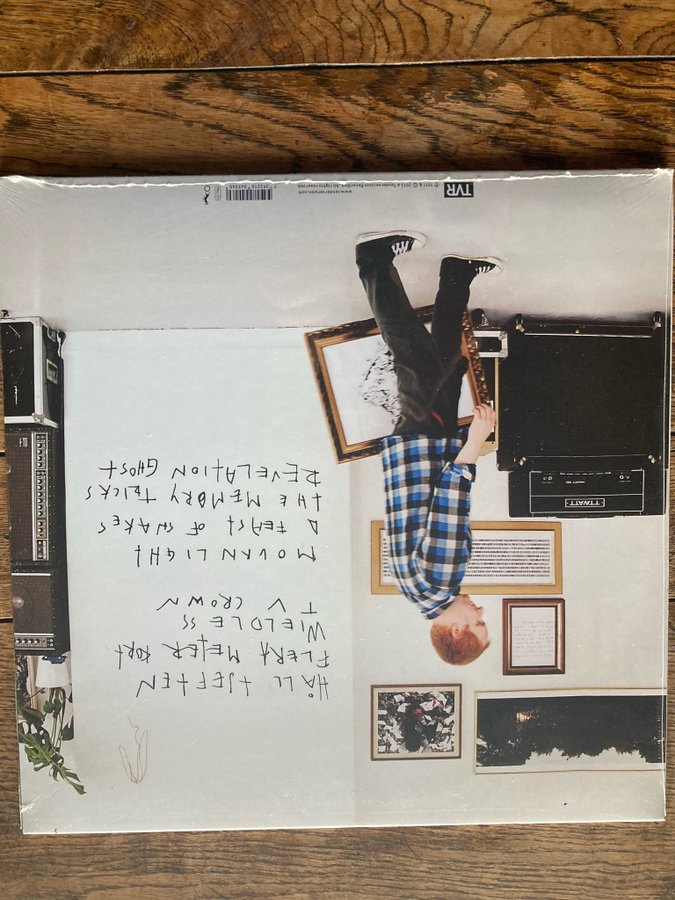 HÅLL TJEFTEN
FLERA METER KORT
WIELDLESS
TV CROWN
MOURNLIGHT
A FEAST OF SNAKES
THE MEMORY TRICKS
REVELATION GHOST
HIWATT
TVR
℗ 2011 & © 2012 A Tenderversion Recording. All rights reserved.
www.tenderversion.com